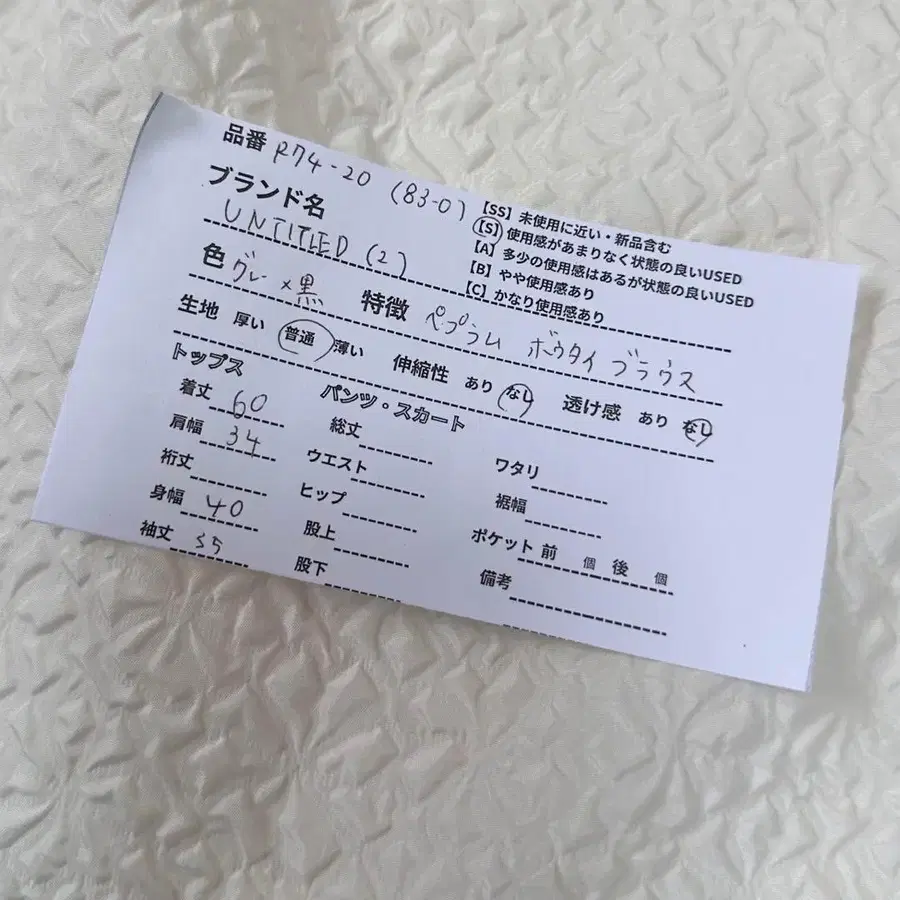 品番 R74-20 (83-0)
【SS】未使用に近い・新品含む
【S】使用感があまりなく状態の良いUSED
【A】多少の使用感はあるが状態の良いUSED
【B】やや使用感あり
【C】かなり使用感あり
ブランド名
UNTITLED (2)
色 グレー×黒 特徴 ペプラム ボウタイ ブラウス
生地 厚い 普通 薄い 伸縮性 あり なし 透け感 あり なし
トップス
着丈 60
肩幅 34
裄丈
身幅 40
袖丈 55
パンツ・スカート
総丈
ウエスト
ヒップ
股上
股下
ワタリ
裾幅
ポケット 前 個 後 個
備考